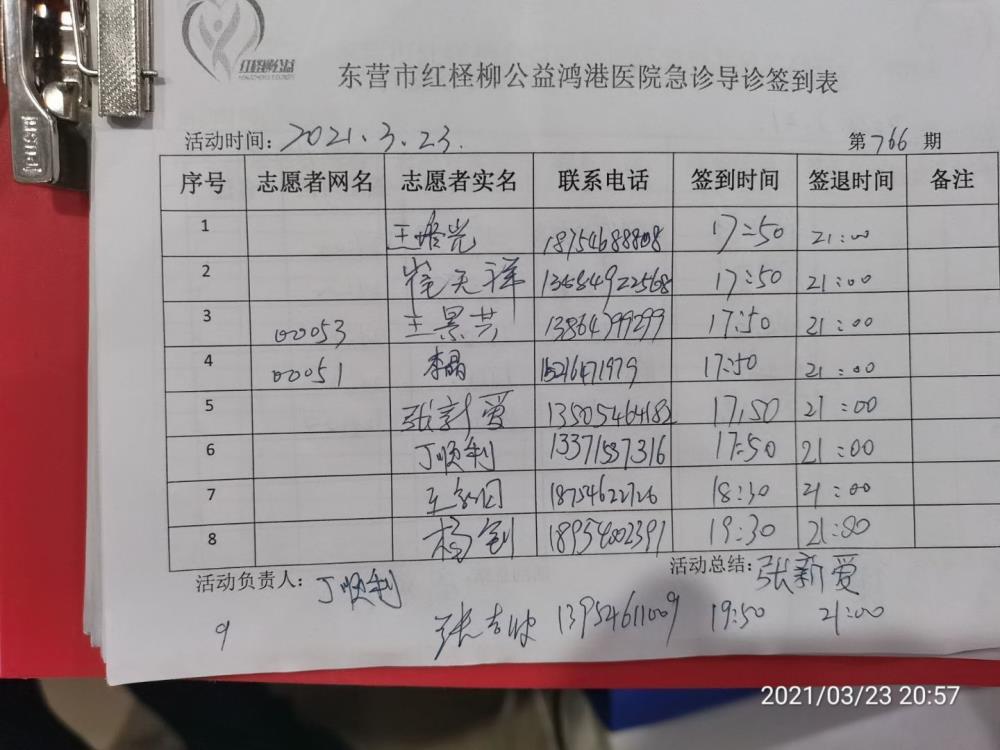 红柽柳公益
东营市红柽柳公益鸿港医院急诊导诊签到表
活动时间：2021.3.23. 第766期
序号 志愿者网名 志愿者实名 联系电话 签到时间 签退时间 备注
1 18754688808 17:50 21:00
2 崔天祥 13484922568 17:50 21:00
3 00053 王景芸 13864799299 17:50 21:00
4 00051 李晶 15216471979 17:50 21:00
5 张新爱 13505464182 17:50 21:00
6 丁顺利 13371587316 17:50 21:00
7 18754622726 18:30 21:00
8 杨剑 18954602391 19:30 21:00
活动负责人：丁顺利 活动总结：张新爱
9 13954611009 19:50 21:00
PUSH
2021/03/23 20:57